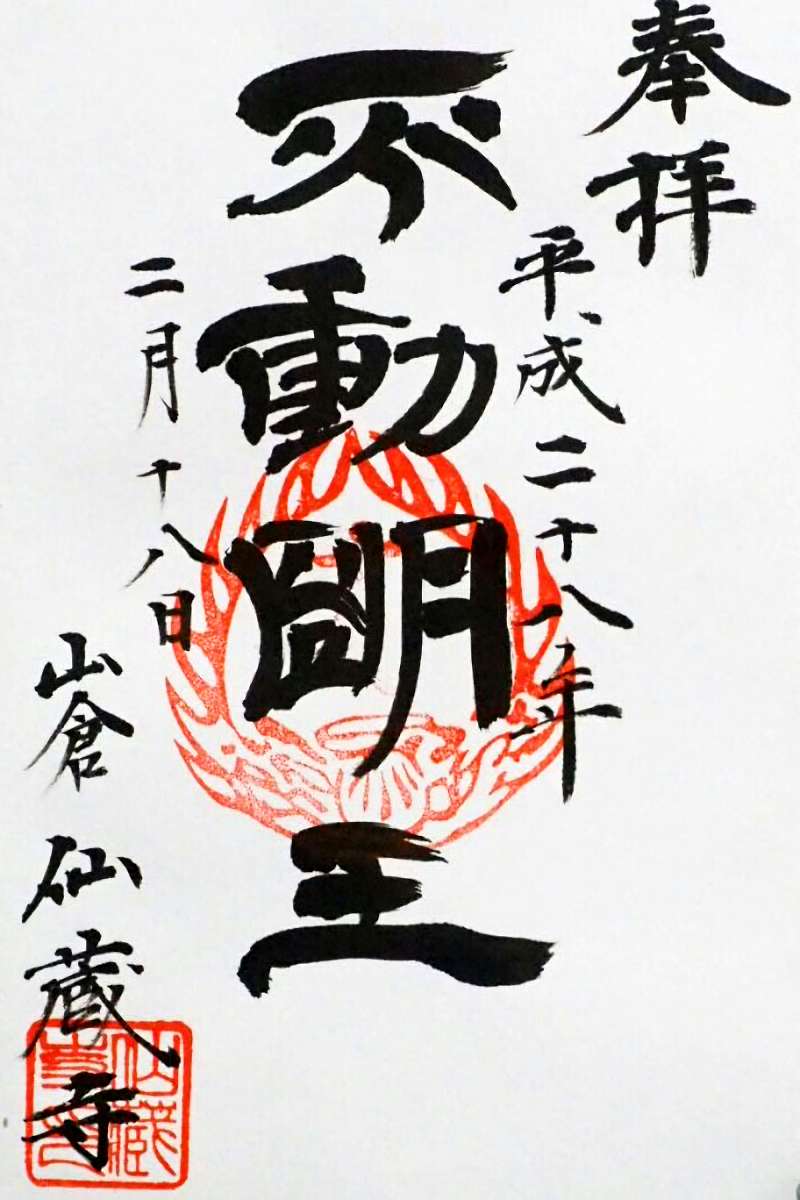 奉拝
平成二十八年
不動明王
二月十八日
山倉 仙蔵寺
仙蔵寺印